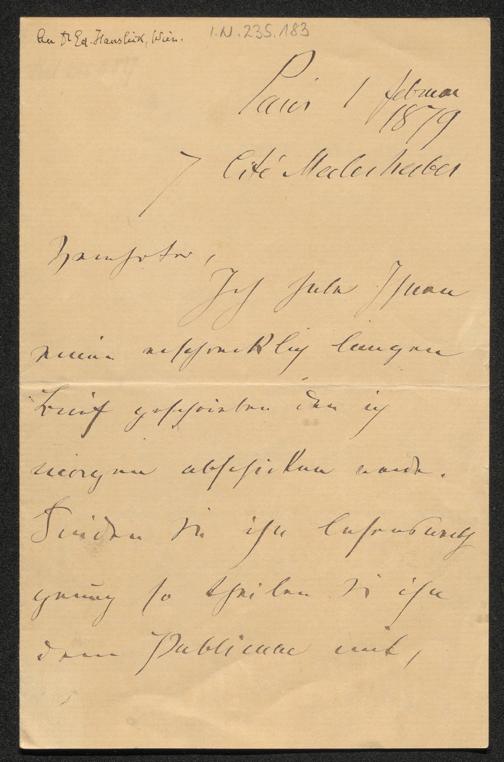 An Dr Ed. Hanslick, Wien.
I.N. 235.183
Paris 1 februar
1879
7 Cité Malesherbes
Ich habe Ihnen
einen erschrecklich langen
Brief geschrieben den ich
morgen abschicken werde.
Finden Sie ihn lesenswerth
genug so theilen Sie ihn
dem Publicum mit,